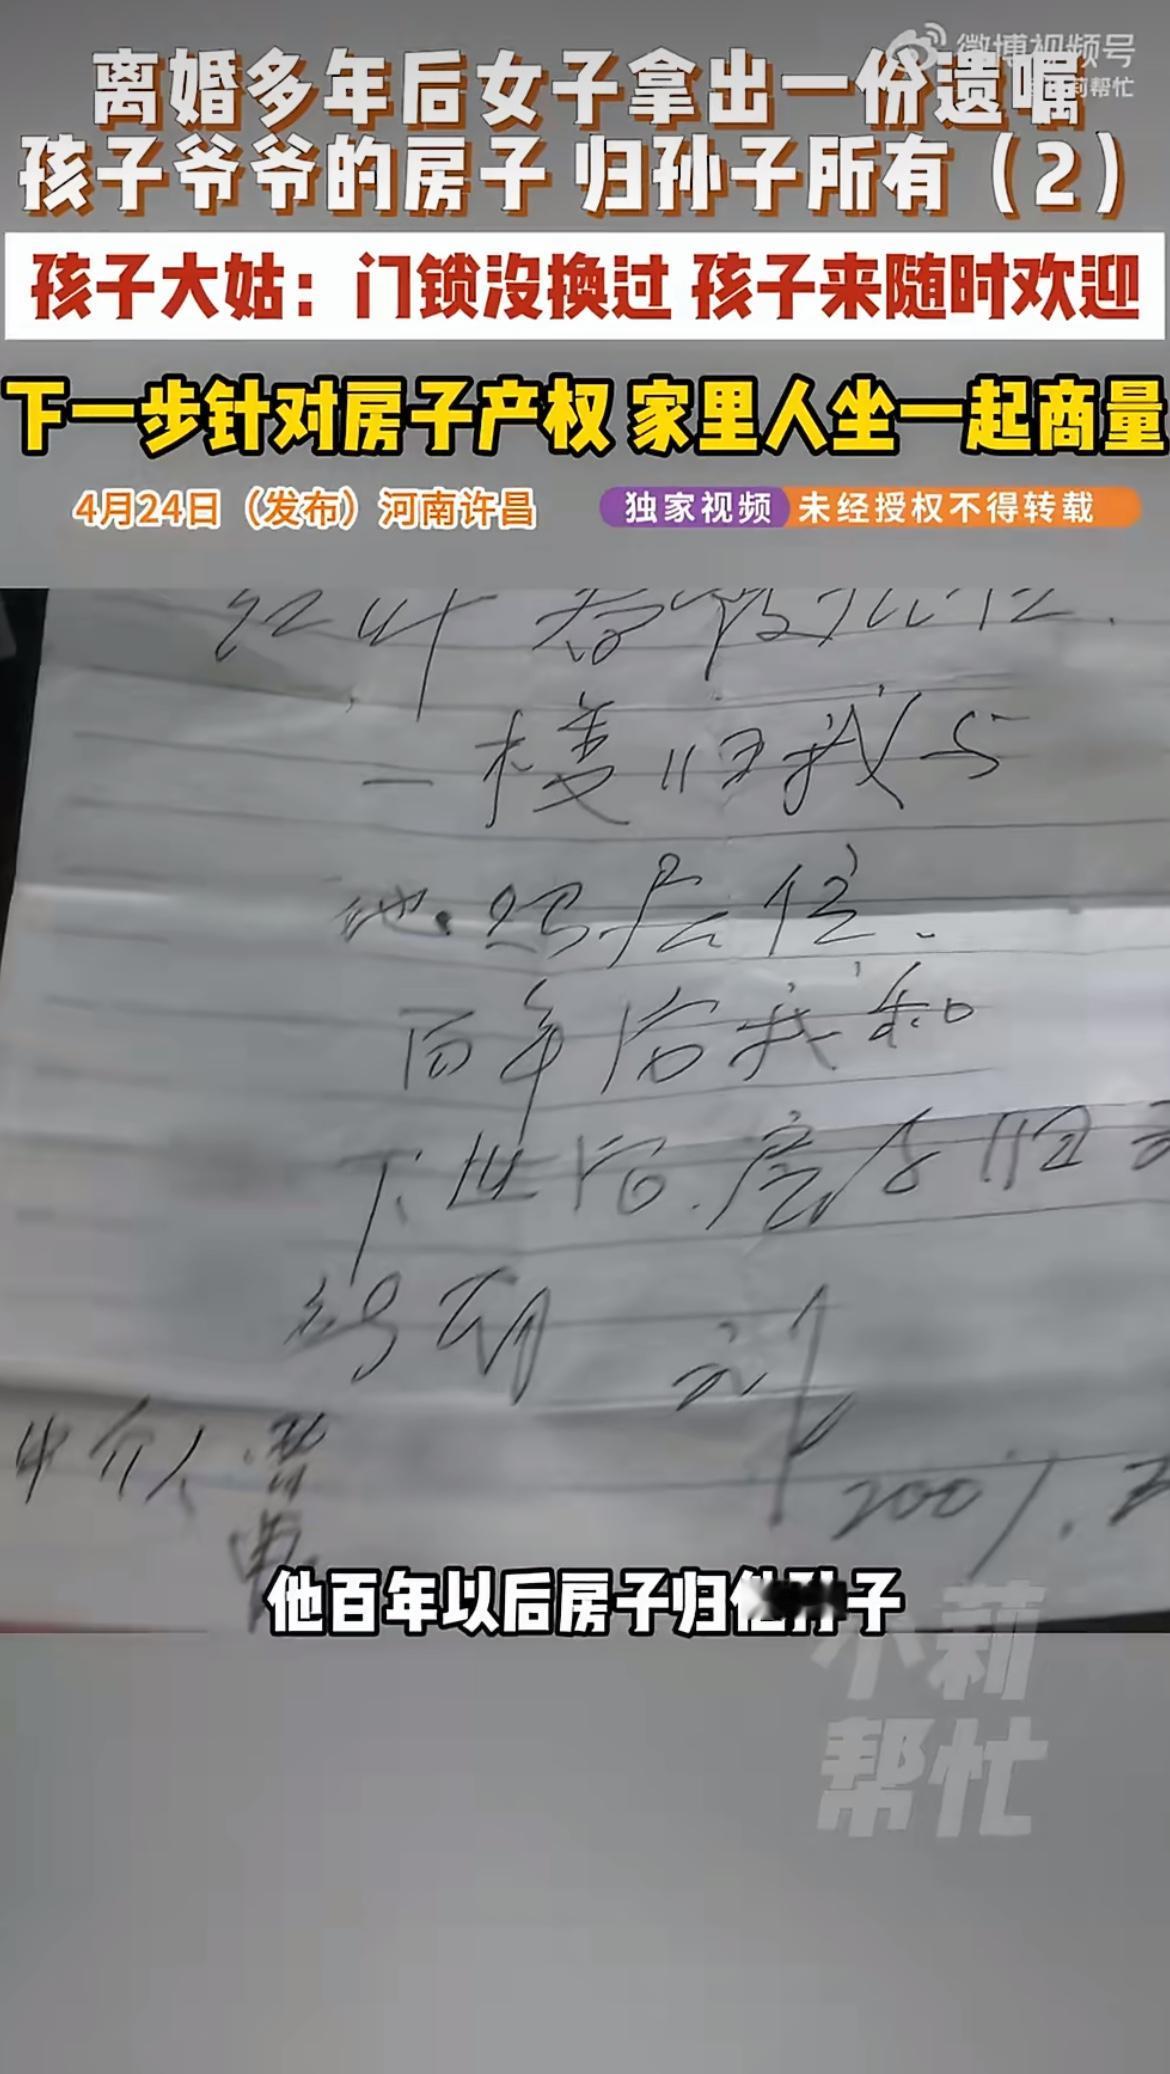 微博视频号
莉帮忙
离婚多年后女子拿出一份遗嘱
孩子爷爷的房子 归孙子所有（2）
孩子大姑：门锁没换过 孩子来随时欢迎
下一步针对房子产权 家里人坐一起商量
4月24日（发布）河南许昌
独家视频 未经授权不得转载
一楼归我与
地 居住.
百年后我和
下世后.房子归
刘
中介人 曹
2007.2
他百年以后房子归他孙子
小莉
帮忙